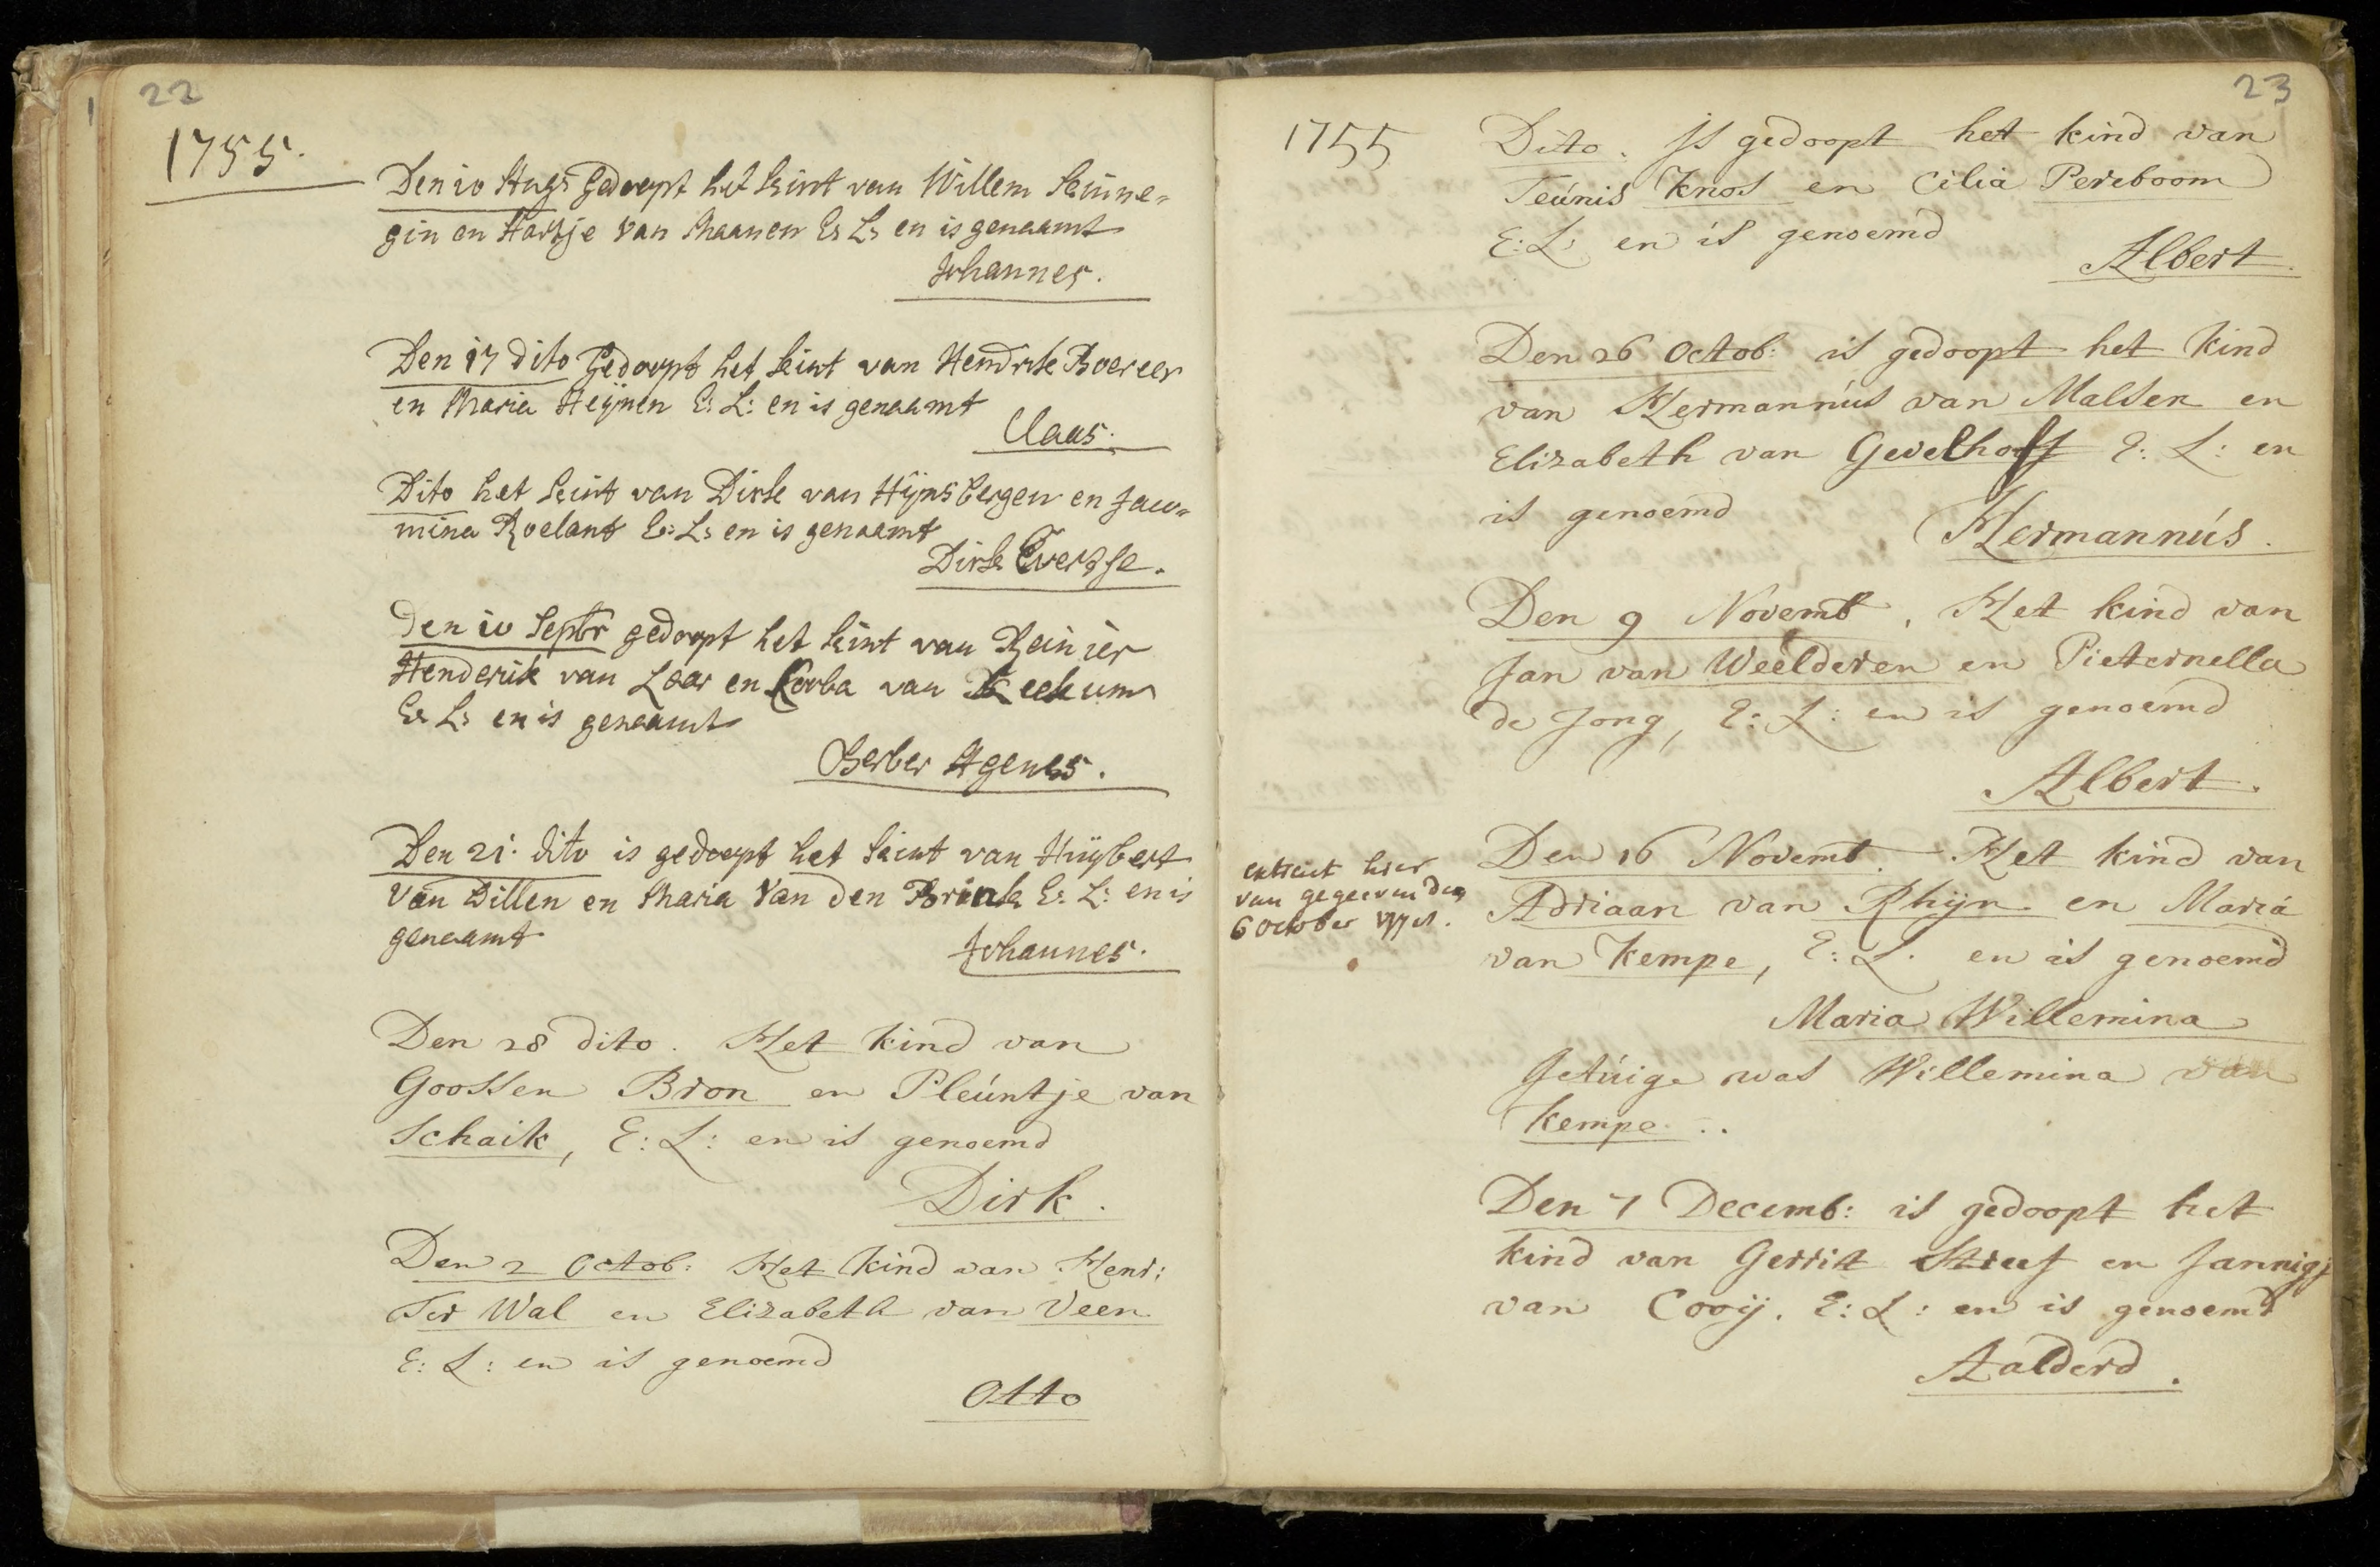 22
1755.
Den 10 Augs Gedoopt het kint van Willem
gin en Hartje van Maanen E: L: en is genaamt
Johannes.
Den 17 dito Gedoopt het kint van Hendrik
en Maria Heijnen E: L: en is genaamt
Claas.
Dito het kint van Dirk van Hijnsbergen en Jan=
mina Roelant E: L: en is genaamt
Dirk
Den 10 Septbr gedoopt het kint van Reinier
Henderik van Laar en van
E: L: en is genaamt
Berber Agenes.
Den 21. dito is gedoopt het kint van Huijbert
van Dillen en Maria Van den Brink E: L: en is
genaamt
Johannes.
Den 28 dito. Het kind van
Goossen Bron en Pleúntje van
Schaik, E: L: en is genoemd
Dirk.
Den 2 Octob: Het kind van Henr:
Ter Wal en Elizabeth van Veen
E: L: en is genoemd
Otto
23
1755
Dito. Is gedoopt het kind van
Teúnis Knos en Cilia Pereboom
E: L: en is genoemd
Albert.
Den 26 Octob: is gedoopt het kind
van Hermannús van Malsen en
Elizabeth van Gevelhoff E: L: en
is genoemd
Hermannús.
Den 9 Novemb. Het kind van
Jan van Weelderen en Pieternella
de Jong, E: L: en is genoemd
Albert.
extract hier
van gegeeven den
6 october
Den 16 Novemb. Het kind van
Adriaan van Rhijn en Maria
van Kempe, E: L. en is genoemd
Maria Willemina
Getúige was Willemina van
Kempe..
Den 7 Decemb: is gedoopt het
kind van Gerrit Streef en Jannigj
van Cooij. E: L: en is genoemd
Aalderd.